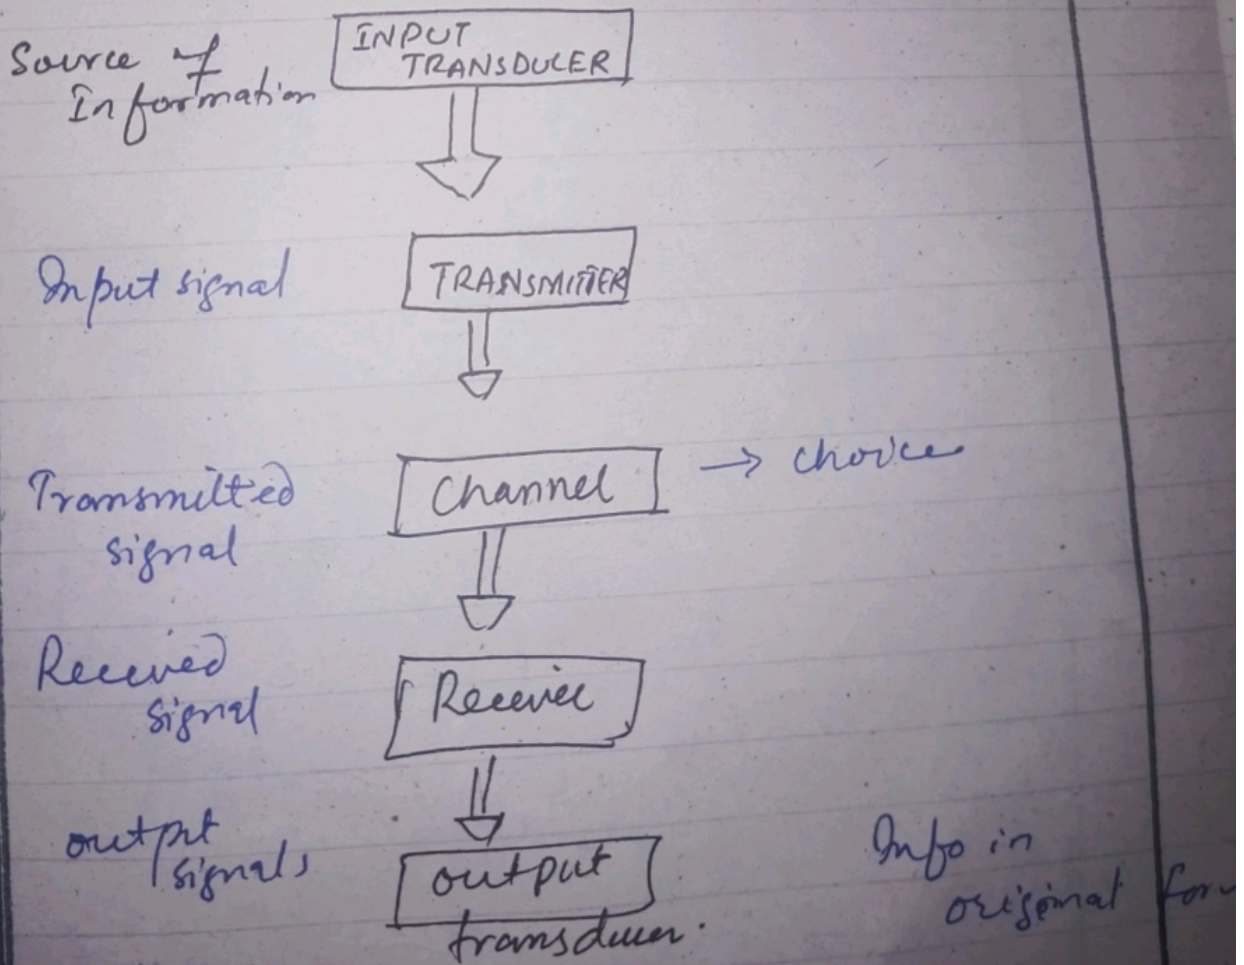 Source of
Information
INPUT
TRANSDUCER
Input signal
TRANSMITTER
Transmitted
signal
Channel
→ choice
Received
signal
Receiver
output
signals
output
transducer.
Info in
original form